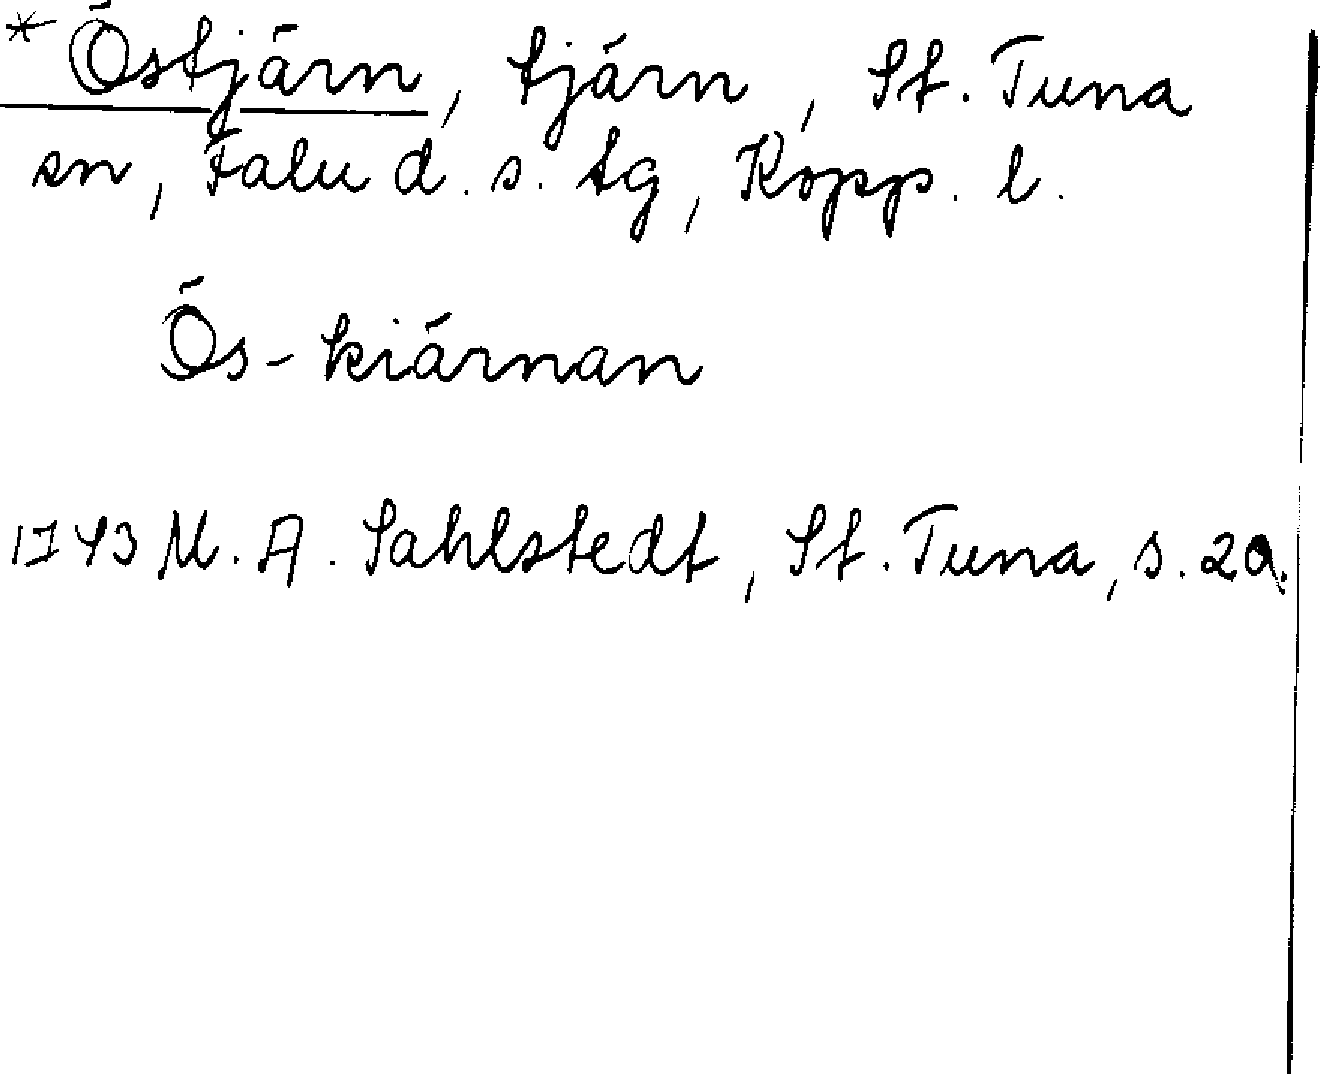 * Östjärn, tjärn, St. Tuna
sn, Falu d. s. tg, Kopp. l.
Ös-kiärnan
1743 M. A. Sahlstedt, St. Tuna, s. 20.